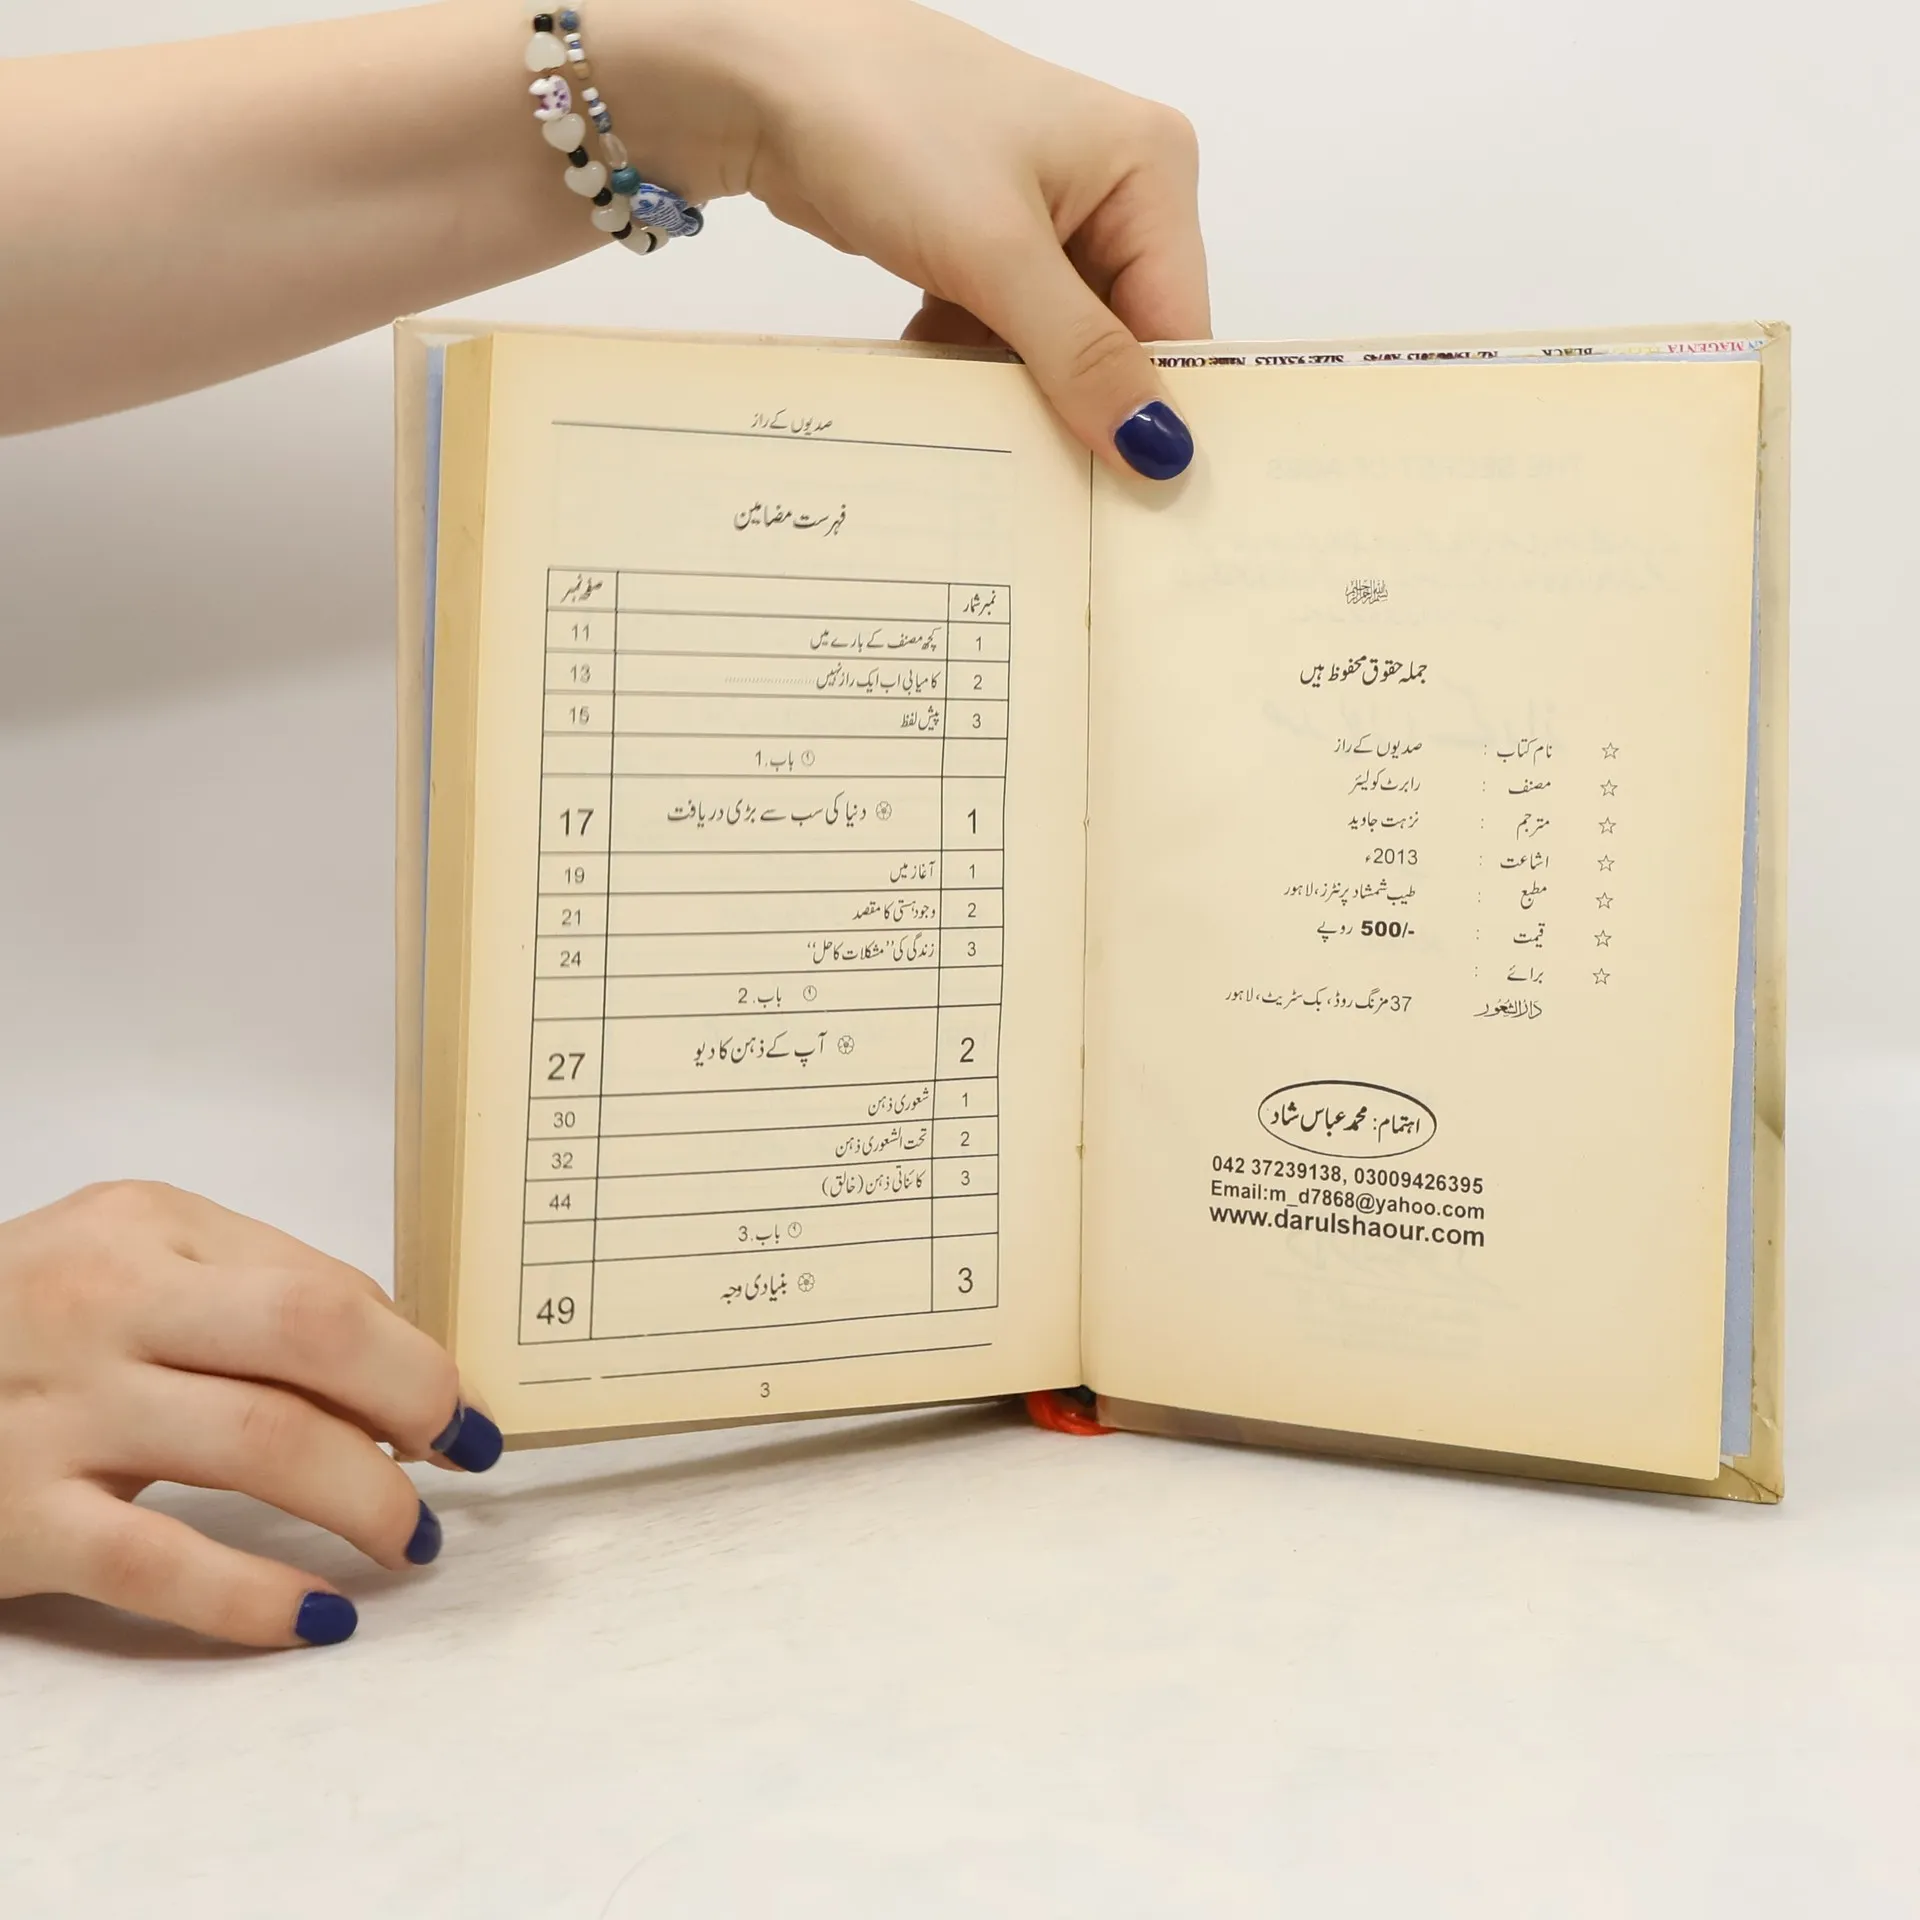 جملہ حقوق محفوظ ہیں
☆ نام کتاب : صدیوں کے راز
☆ مصنف : رابرٹ کولیئر
☆ مترجم : نزہت جاوید
☆ اشاعت : 2013ء
☆ مطبع : طیب شمشاد پرنٹرز، لاہور
☆ قیمت : 500/- روپے
☆ برائے :
دارالشعور 37 مزنگ روڈ، بک سٹریٹ، لاہور
اہتمام: محمد عباس شاد
042 37239138, 03009426395
Email:m_d7868@yahoo.com
www.darulshaour.com
صدیوں کے راز
فہرست مضامین
نمبر شمار صفحہ نمبر
1 کچھ مصنف کے بارے میں 11
2 کامیابی اب ایک راز نہیں...................... 13
3 پیش لفظ 15
باب.1
1 دنیا کی سب سے بڑی دریافت 17
1 آغاز میں 19
2 وجود ہستی کا مقصد 21
3 زندگی کی ’’مشکلات کا حل‘‘ 24
باب.2
2 آپ کے ذہن کا دیو 27
1 شعوری ذہن 30
2 تحت الشعوری ذہن 32
3 کائناتی ذہن (خالق) 44
باب.3
3 بنیادی وجہ 49
3